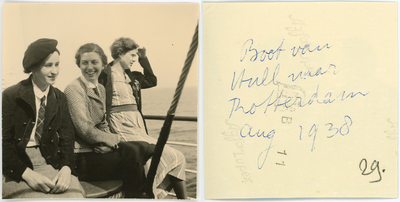 Boot van
Hull naar
Rotterdam
Aug 1938
B 11
29.